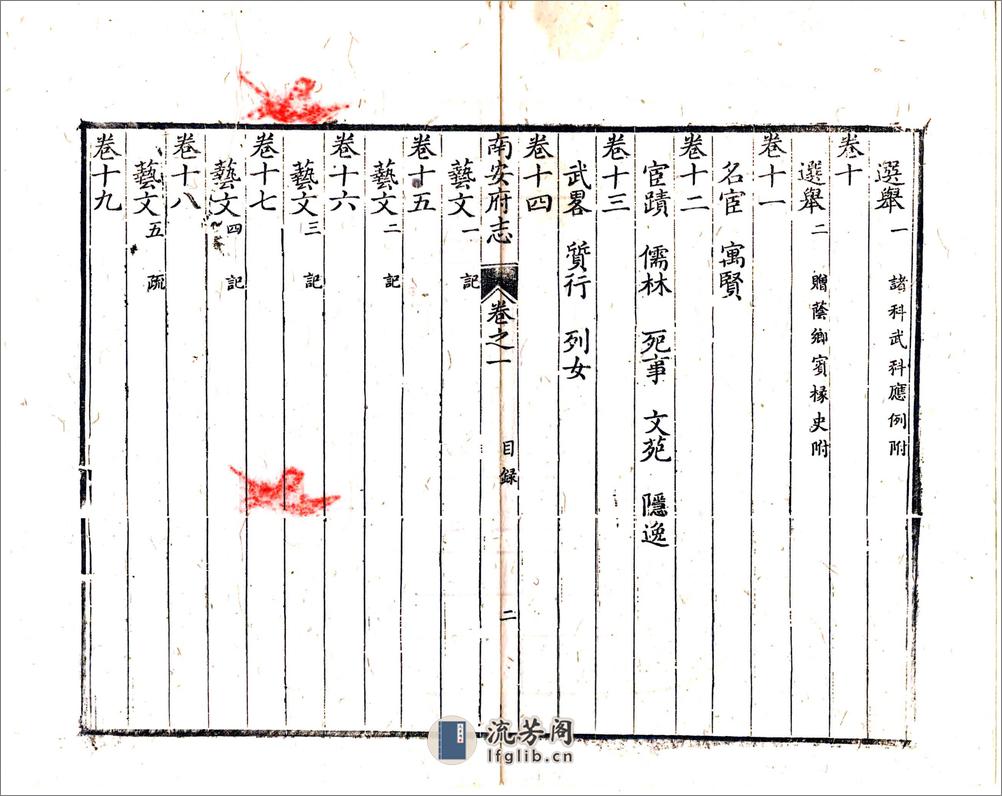 選舉一 諸科武科應例附
卷十
選舉二 贈蔭鄉賓掾史附
卷十一
名宦 寓賢
卷十二
宦蹟 儒林 死事 文苑 隱逸
卷十三
武畧 質行 列女
卷十四
南安府志 卷之一 目錄 二
藝文一 記
卷十五
藝文二 記
卷十六
藝文三 記
卷十七
藝文四 記
卷十八
藝文五 疏
卷十九
流芳阁
lfglib.cn